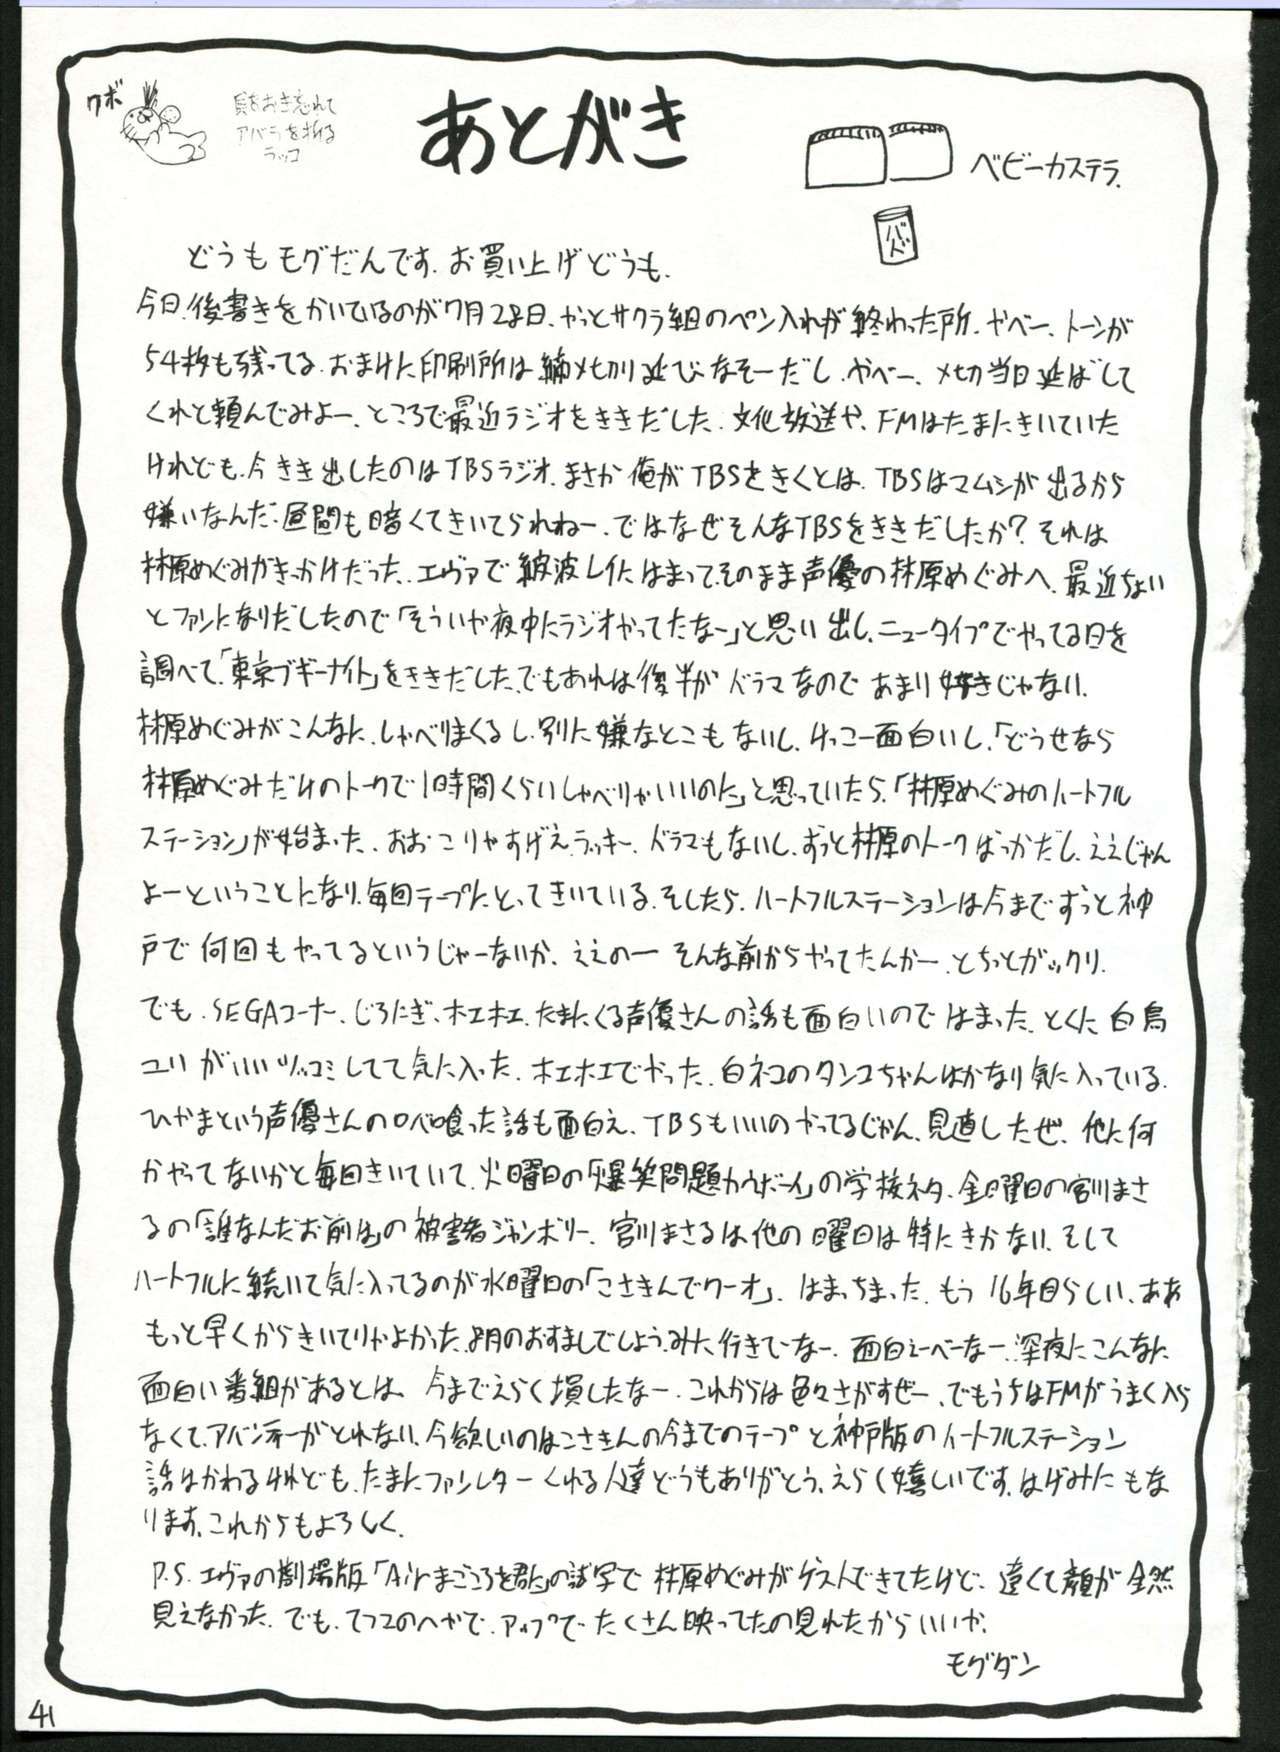 クボ
貝をおき忘れて
アバラを折る
ラッコ
あとがき
ベビーカステラ.
バド
どうもモグだんです.お買い上げどうも.
今日.後書きをかいているのが7月28日.やっとサクラ組のペン入れが終わった所.やべー、トーンが
54枚も残ってる.おまけに印刷所は締メ切り延びなそーだし.やべー、メ切当日延ばして
くれと頼んでみよー、ところで最近ラジオをききだした.文化放送や、FMはたまにきいていた
けれども.今きき出したのはTBSラジオ.まさか俺がTBSをきくとは.TBSはマムシが出るから
嫌いなんだ.昼間も暗くてきいてられねー.ではなぜそんなTBSをききだしたか?それは
林原めぐみがきっかけだった.エヴァで綾波レイにはまって.そのまま声優の林原めぐみへ.最近ちょい
とファンになりだしたので「そういや夜中にラジオやってたなー」と思い出し.ニュータイプでやってる日を
調べて.「東京ブギーナイト」をききだした.でもあれは後半がドラマなのであまり好きじゃない.
林原めぐみがこんなに.しゃべりまくるし.別に嫌なとこもないし.けっこー面白いし.「どうせなら
林原めぐみだけのトークで1時間くらいしゃべりゃいいのに」と思っていたら.「林原めぐみのハートフル
ステーション」が始まった.おおこりゃすげえ.ラッキー.ドラマもないし.ずっと林原のトークばっかだし.ええじゃん
よーということになり.毎回テープにとってきいている.そしたら.ハートフルステーションは今までずっと神
戸で何回もやってるというじゃーないか.ええのー そんな前からやってたんかー.とちっとガックリ.
でも.SEGAコーナー、じろたぎ、ホエホエ.たまにくる声優さんの話も面白いのではまった.とくに白鳥
ユリがいいツッコミしてて気に入った.ホエホエでやった.白ネコのタンコちゃんはかなり気に入っている.
ひやまという声優さんのロベ喰った話も面白え.TBSもいいのやってるじゃん.見直したぜ.他に何
かやってないかと毎回きいていて.火曜日の「爆笑問題カウボーイ」の学校ネタ.金曜日の宮川まさ
るの「誰なんだお前は」の被害者ジャンボリー.宮川まさるは他の曜日は特にきかない.そして
ハートフルに続いて気に入ってるのが水曜日の「こさきんでワーオ」.はまっちまった.もう16年目らしい.ああ
もっと早くからきいてりゃよかった.8月のおすましでしょう.みに行きてーなー.面白えーべーなー.深夜にこんなに
面白い番組があるとは 今までえらく損したなー.これからは色々さがすぜー.でもうちはFMがうまく入ら
なくて.アバンティーがとれない.今欲しいのはこさきんの今までのテープと神戸版のハートフルステーション
話はかわるけれども.たまにファンレターくれる人達どうもありがとう.えらく嬉しいです.はげみにもな
ります.これからもよろしく.
P.S.エヴァの劇場版「Airまごころを君に」の試写で林原めぐみがゲストできてたけど.遠くて顔が全然
見えなかった.でも.てつこのへやで.アップでたくさん映ってたの見れたからいいや.
モグダン
41